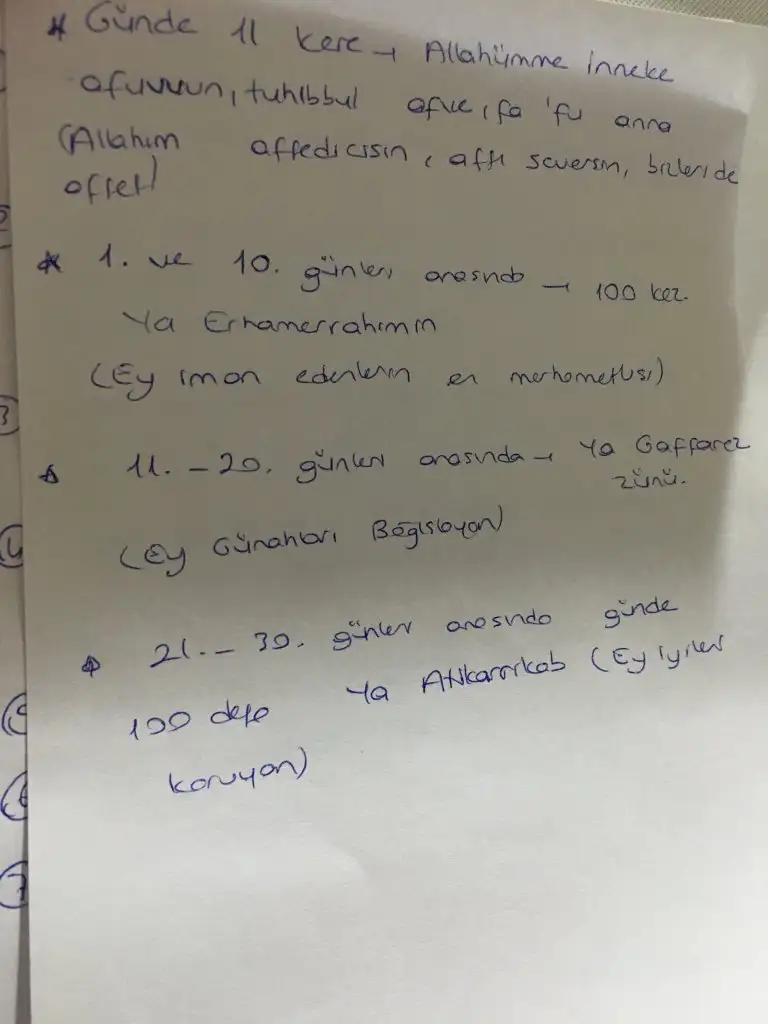 * Günde 11 kere → Allahümme inneke
afuvvun, tuhıbbul afve, fa 'fu anna
(Allahım affedicisin, affı seversin, bizleri de
affet)
* 1. ve 10. günleri arasında → 100 kez.
Ya Erhamerrahımın
(Ey iman edenlerin en merhametlisi)
* 11. - 20. günleri arasında → Ya Gaffarez
zünü.
(Ey Günahları Bağışlayan)
* 21. - 30. günler arasında günde
100 defa Ya Atikarrikab (Ey iyiler
koruyan)
3
4
5
6
7